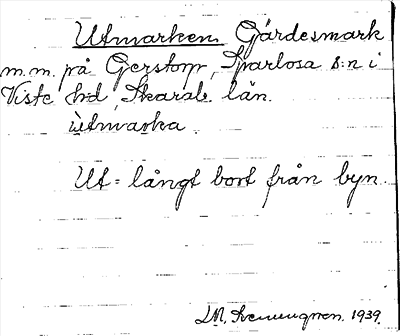 Utmarken Gärdesmark
m.m. på Gerstorp, Sparlösa s:n i
Viste hd, Skarab. län.
ùtmarka
Ut = långt bort från byn.
1939